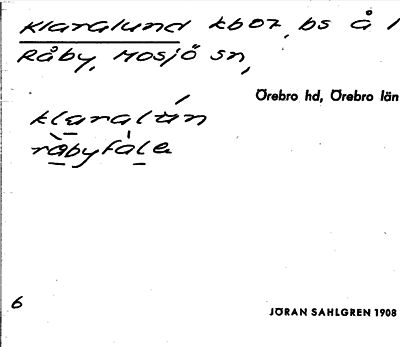 Klaralund kb07, bs å 1
Råby, Mosjö sn,
Örebro hd, Örebro län
klaralún
råbyfàla
6
JÖRAN SAHLGREN 1908